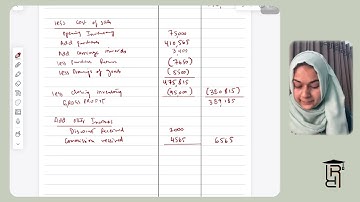 Less Cost of Sales
Opening Inventory 75000
Add purchases 410,565
Add carriage inwards 3400
Less purchase Returns (7650)
Less Drawings of goods (5500)
475,815
Less closing inventory (95000) (380815)
GROSS PROFIT 389185
Add other Incomes
Discount Received 2000
Commission received 4565 6565